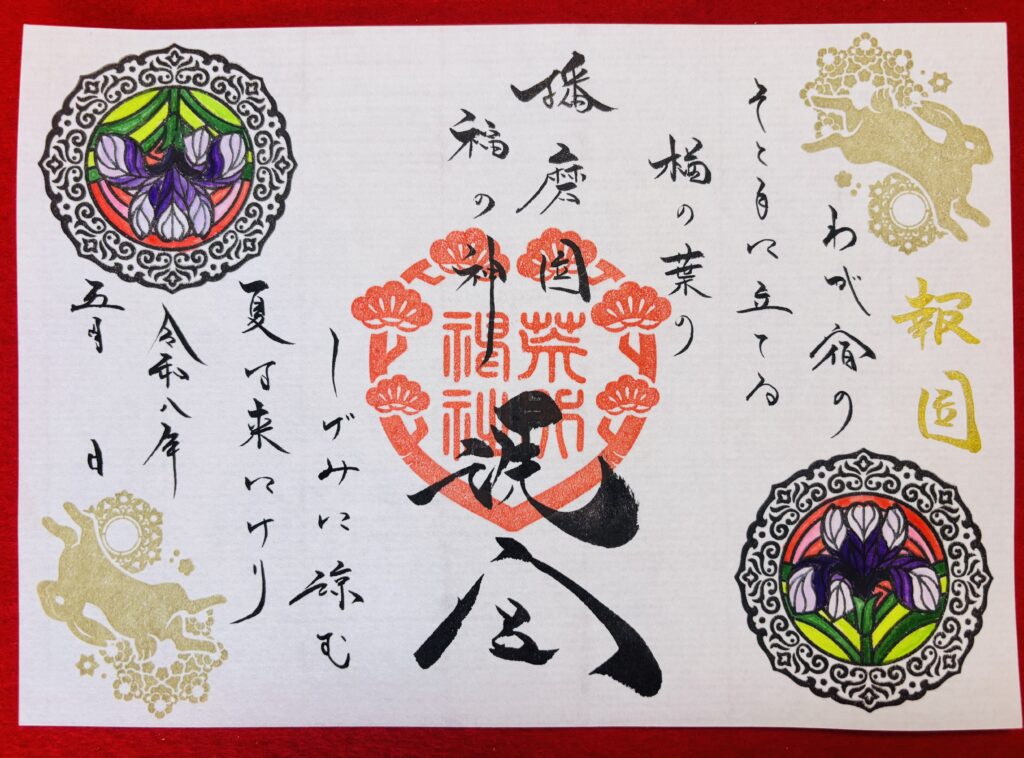 報国
わが宿の
そともに立てる
楢の葉の
播磨国
福の神
しげみに涼む
夏は来にけり
令和八年
五月 日